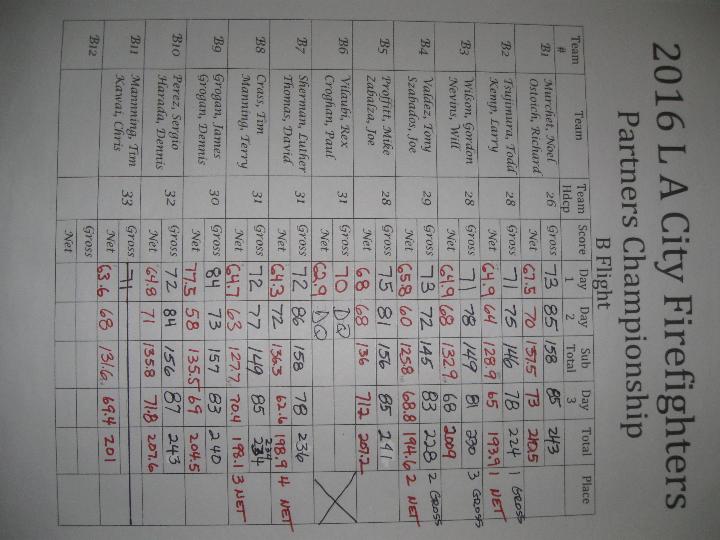 2016 L A City Firefighters
Partners Championship
B Flight
Team # Team Team Hdcp Score Day 1 Day 2 Sub Total Day 3 Total Place
B1 Murchet, Noel 26 Gross 73 85 158 85 243
Ostoich, Richard Net 67.5 70 137.5 73 210.5
B2 Tsujimura, Todd 28 Gross 71 75 146 78 224 1 GROSS
Kemp, Larry Net 64.9 64 128.9 65 193.9 1 NET
B3 Wilson, Gordon 28 Gross 71 78 149 81 230 3 GROSS
Nevins, Will Net 64.9 68 132.9 68 200.9
B4 Valdez, Tony 29 Gross 73 72 145 83 228 2 GROSS
Szabados, Joe Net 65.8 60 125.8 68.8 194.6 2 NET
B5 Proffitt, Mike 28 Gross 75 81 156 85 241
Zabalza, Joe Net 68 68 136 71.2 207.2
B6 Vilaubi, Rex 31 Gross 70 DQ
Croghan, Paul Net 62.9 DQ
B7 Sherman, Luther 31 Gross 72 86 158 78 236
Thomas, David Net 64.3 72 136.3 62.6 198.9 4 NET
B8 Crass, Tim 31 Gross 72 77 149 85 234
Manning, Terry Net 64.7 63 127.7 70.4 198.1 3 NET
B9 Grogan, James 30 Gross 84 73 157 83 240
Grogan, Dennis Net 77.5 58 135.5 69 204.5
B10 Perez, Sergio 32 Gross 72 84 156 87 243
Harada, Dennis Net 64.8 71 135.8 71.8 207.6
B11 Mannning, Tim 33 Gross 71
Kawai, Chris Net 63.6 68 131.6 69.4 201
B12 Gross
Net